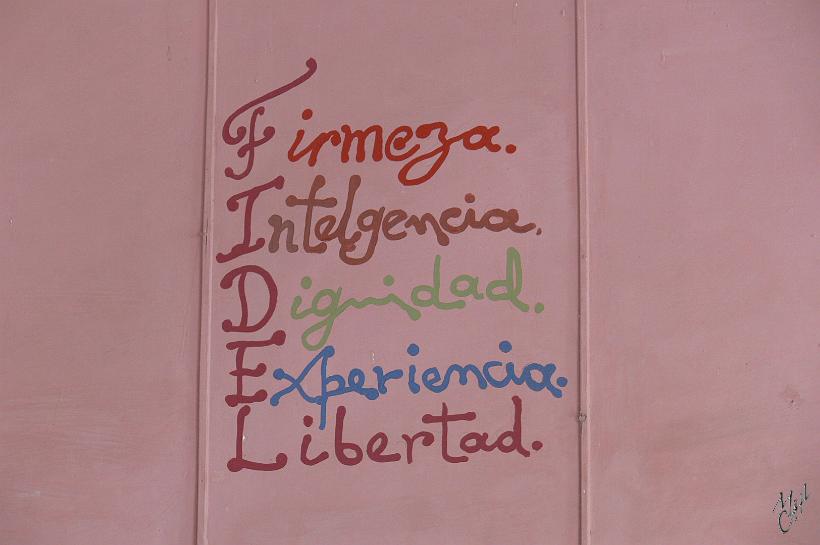 Firmeza.
Intelgencia.
Dignidad.
Experiencia.
Libertad.